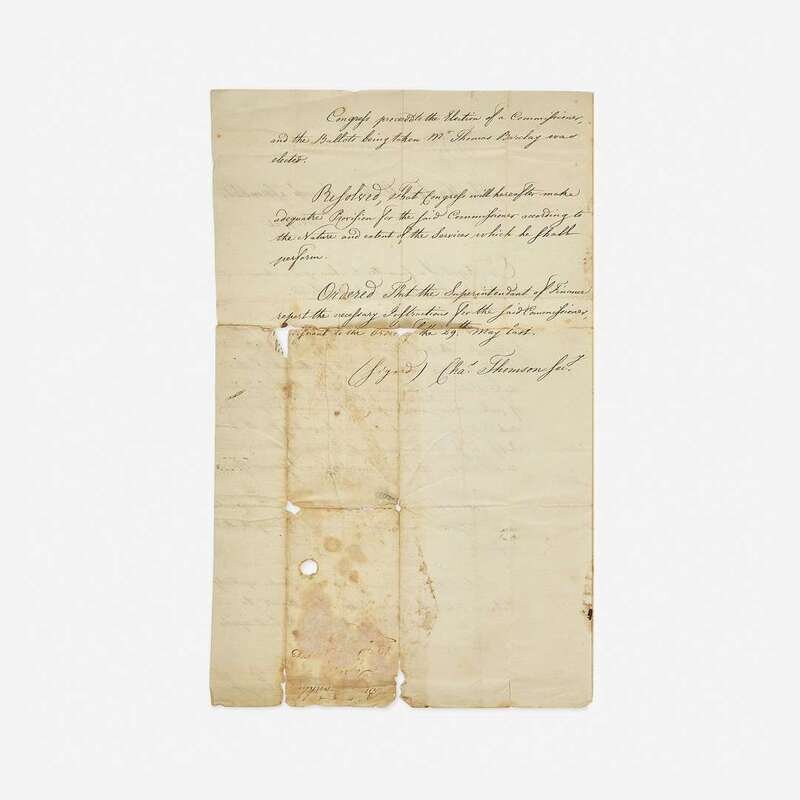 Congress proceeded to the Election of a Commissioner,
and the Ballots being taken Mr. Thomas Barclay was
elected.
Resolved, That Congress will hereafter make
adequate Provision for the said Commissioner according to
the Nature and extent of the Services which he shall
perform.
Ordered That the Superintendant of Finance
report the necessary Instructions for the said Commissioner
to the of the 29th. May last.
(Signed) Chas. Thomson Secy.